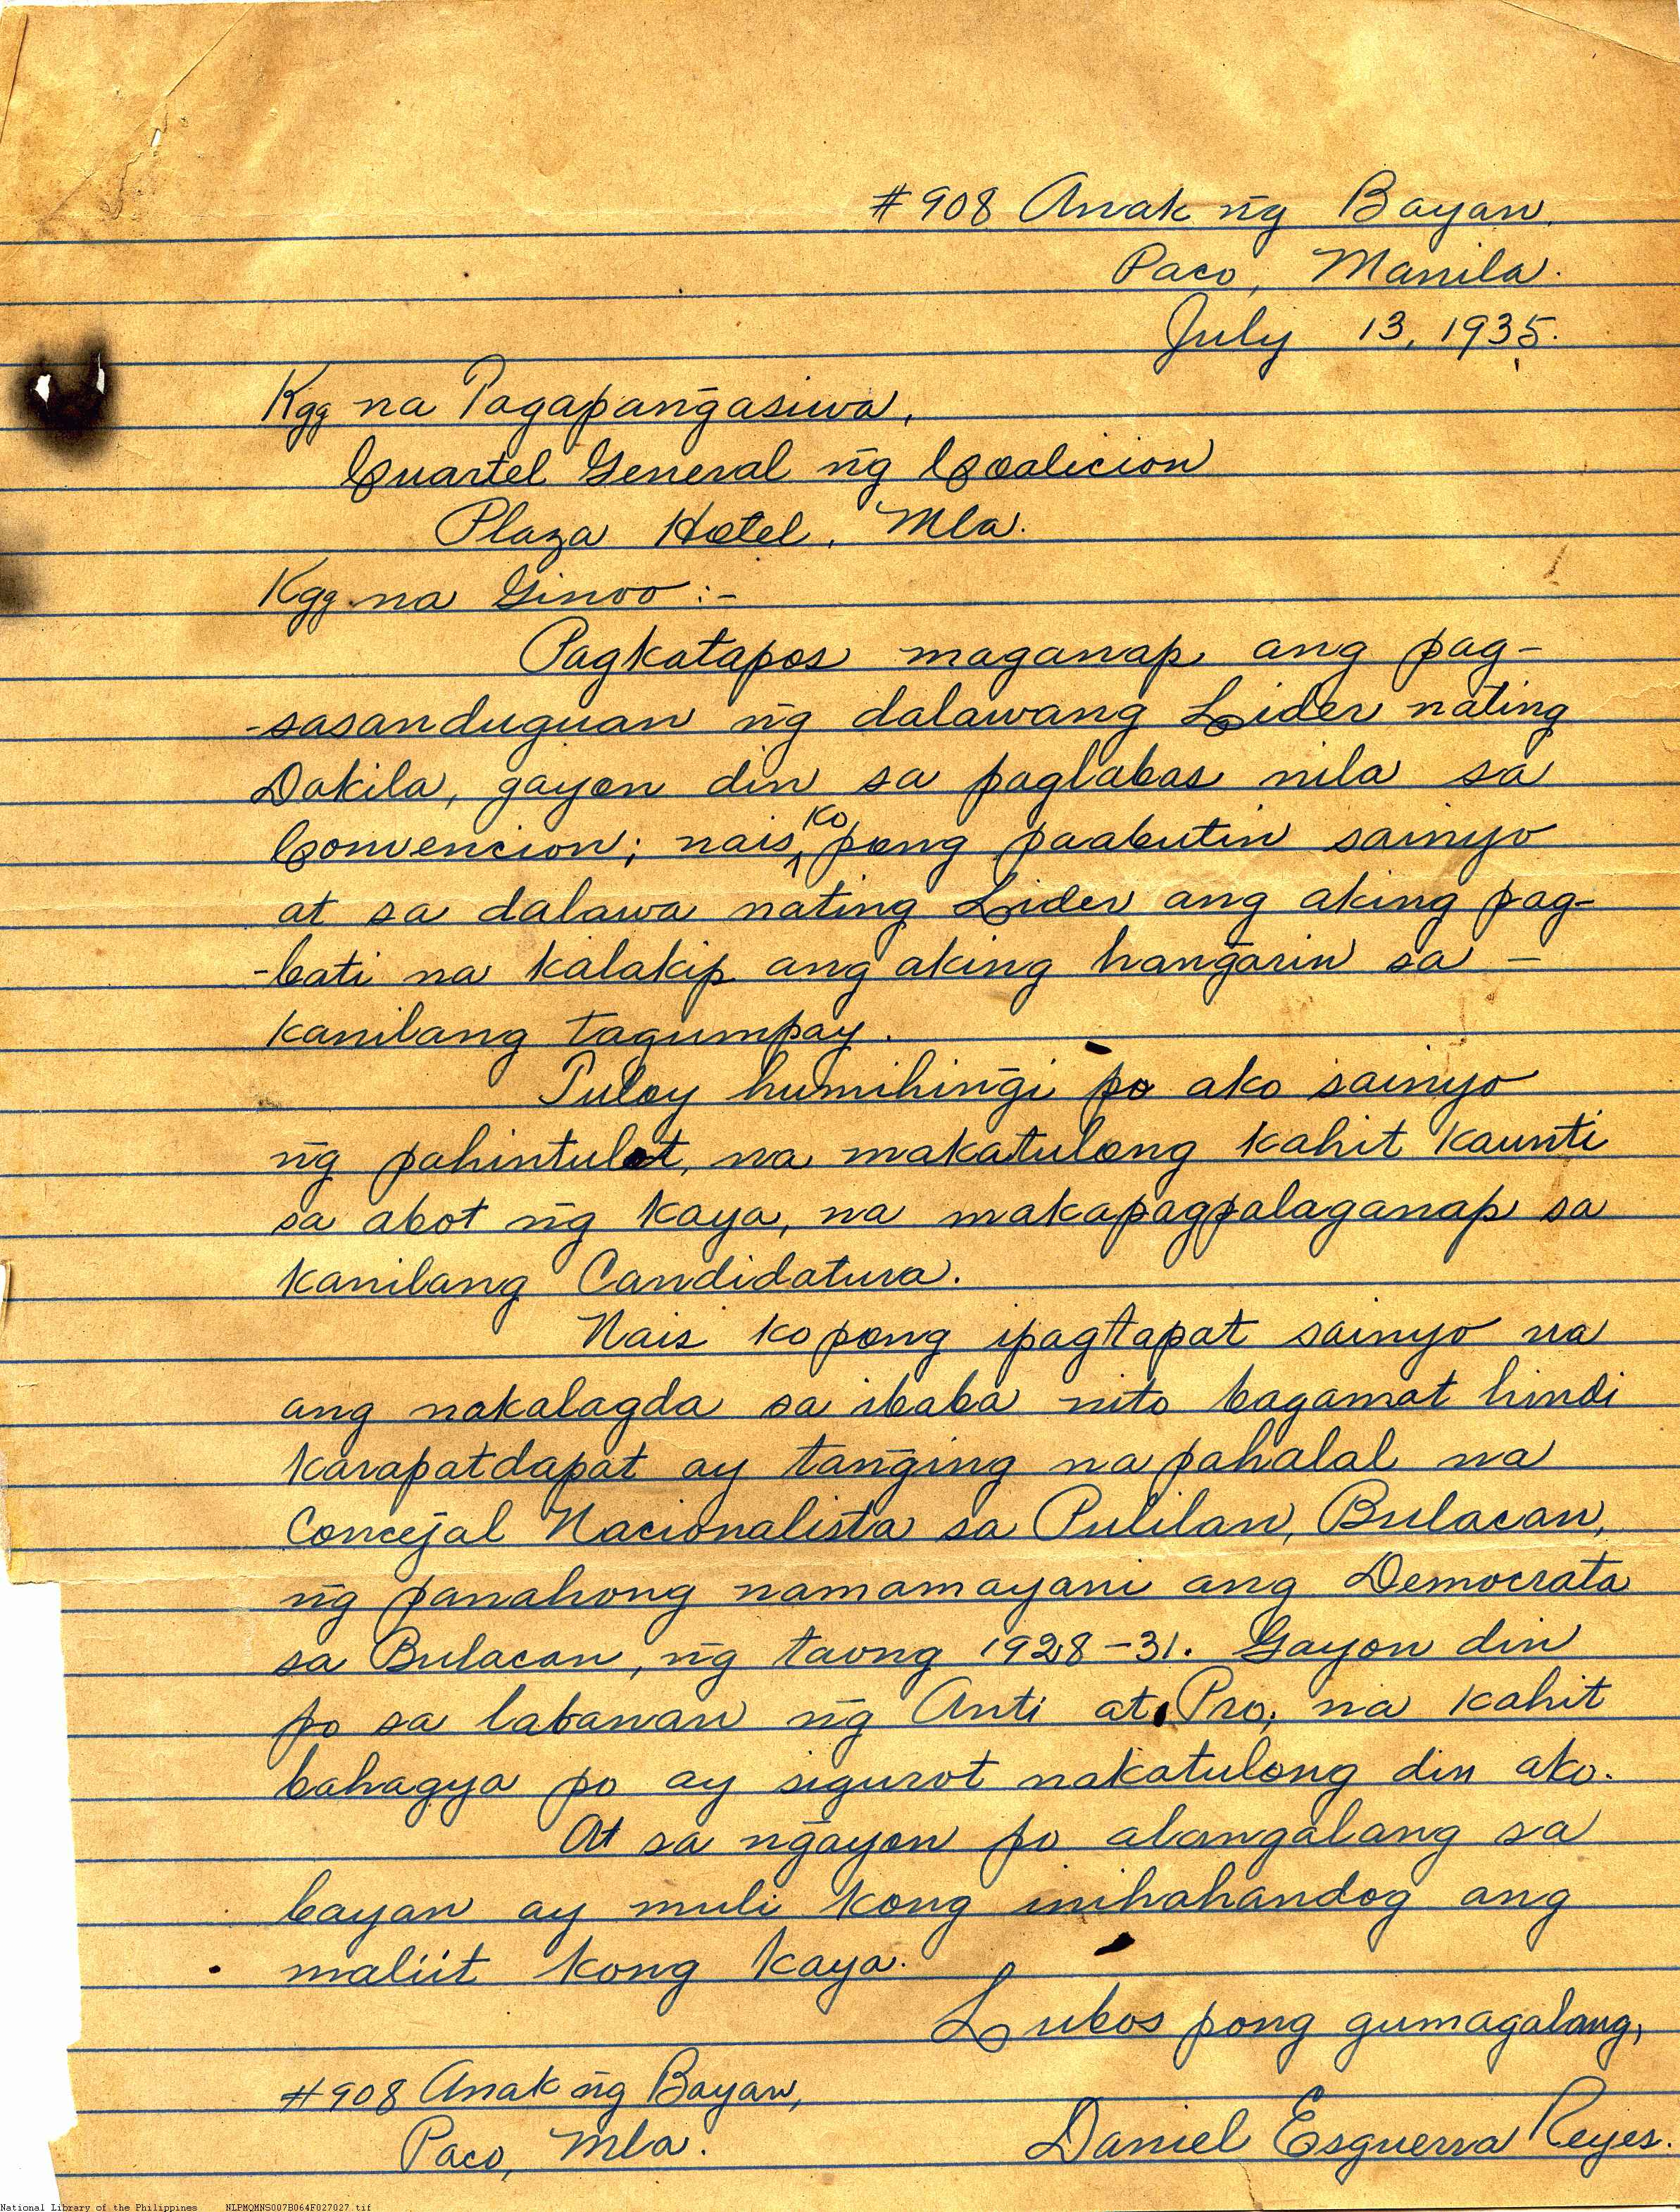 #908 Anak ng̃ Bayan,
Paco, Manila.
July 13, 1935.
Kgg na Tagapang̃asiwa,
Cuartel General ng̃ Coalicion
Plaza Hotel, Mla.
Kgg na Ginoo :-
Pagkatapos maganap ang pag-
-sasanduguan ng̃ dalawang Lider nating
Dakila, gayon din sa paglabas nila sa
Convencion; nais ko pong paabutin sainyo
at sa dalawa nating Lider ang aking pag-
-bati na kalakip ang aking hang̃arin sa -
kanilang tagumpay.
Tuloy humihing̃i po ako sainyo
ng̃ pahintulot, na makatulong kahit kaunti
sa abot ng̃ kaya, na makapagpalaganap sa
kanilang Candidatura.
Nais ko pong ipagtapat sainyo na
ang nakalagda sa ibaba nito bagamat hindi
karapatdapat ay tang̃ing napahalal na
Concejal Nacionalista sa Pulilan, Bulacan,
ng̃ panahong namamayani ang Democrata
sa Bulacan, ng̃ taong 1928-31. Gayon din
po sa labanan ng̃ Anti at Pro, na kahit
bahagya po ay sigurot nakatulong din ako.
At sa ng̃ayon po alangalang sa
bayan ay muli kong inihahandog ang
maliit kong kaya.
Lubos pong gumagalang,
#908 Anak ng̃ Bayan,
Paco, Mla.
Daniel Esguerra Reyes.
National Library of the Philippines NLPMQMNS007B064F027027.tif